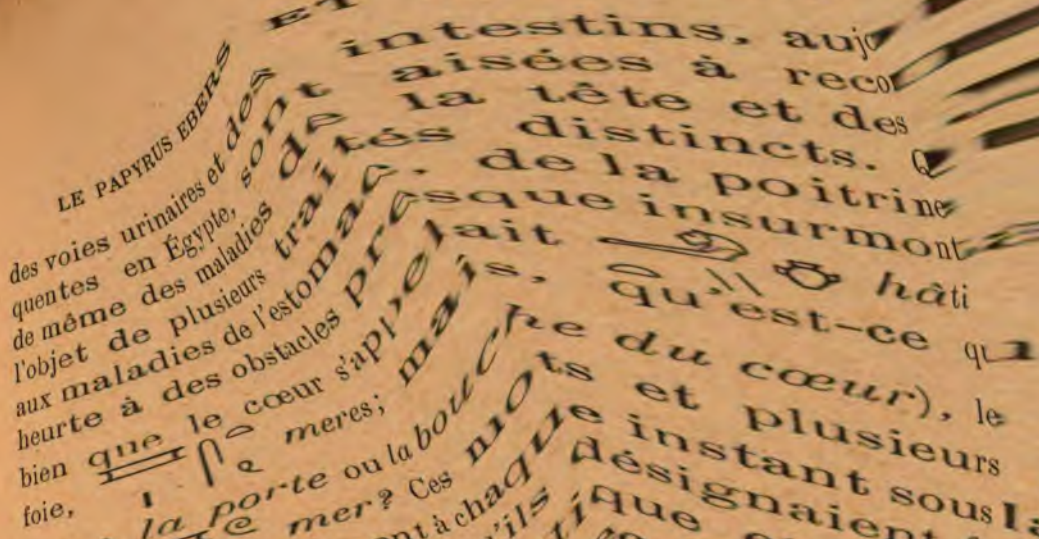 LE PAPYRUS EBERS ET
des voies urinaires et des intestins, aujo
quentes en Égypte, sont aisées à reco
de même des maladies de la tête et des
l'objet de plusieurs traités distincts.
aux maladies de l'estomac, de la poitrine
heurte à des obstacles presque insurmont
bien que le cœur s'appelait hâti
foie, meres; mais, qu'est-ce qu
la porte ou la bouche du cœur), le
mer? Ces mots et plusieurs
à chaque instant sous la
qu'ils désignaient